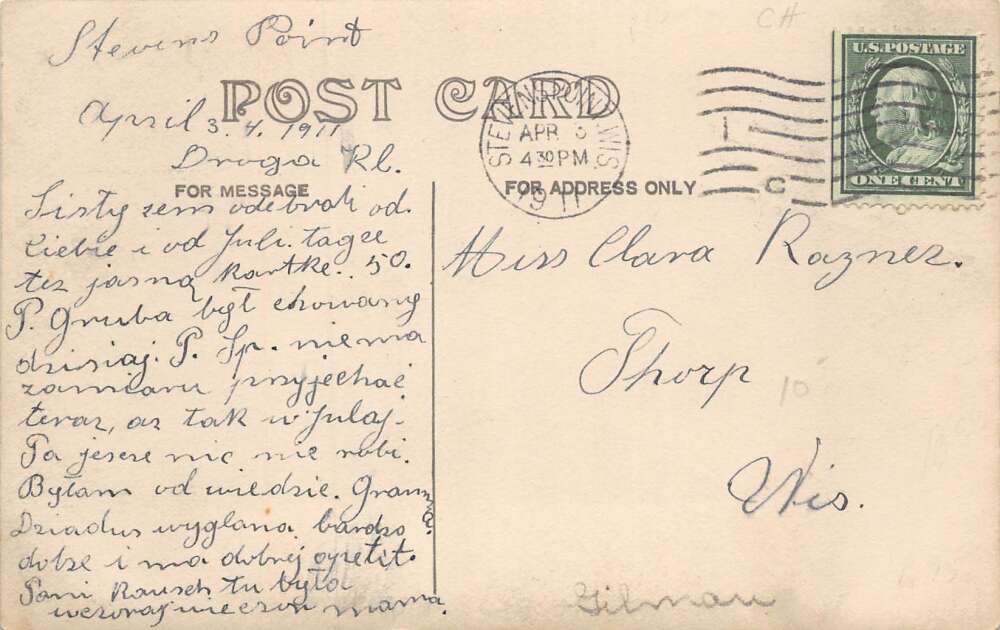 CH
Stevens Point
U.S. POSTAGE
POST CARD
April 3. 4. 1911
STEVENS POINT WIS.
APR 3
4 30 PM
1911
ONE CENT
Droga Kl.
FOR MESSAGE
FOR ADDRESS ONLY
Listy zem odebrali od.
Ciebie i od Juli. tagze
tez jasną kartke.. 50.
P. Gruba był chowany
dzisiaj. P. Sp. niema
zamiaru przyjechać
teraz, az tak w Julaj.
Pa jesze nic nie robi.
Byłam od wiedzic. Gramy
Dziadus wyglana bardzo
dobze i ma dobrej apetit.
Pani Rausch tu była
wczoraj wieczor mama.
Miss Clara Raznez.
Thorp
10
Wis.
Gilman